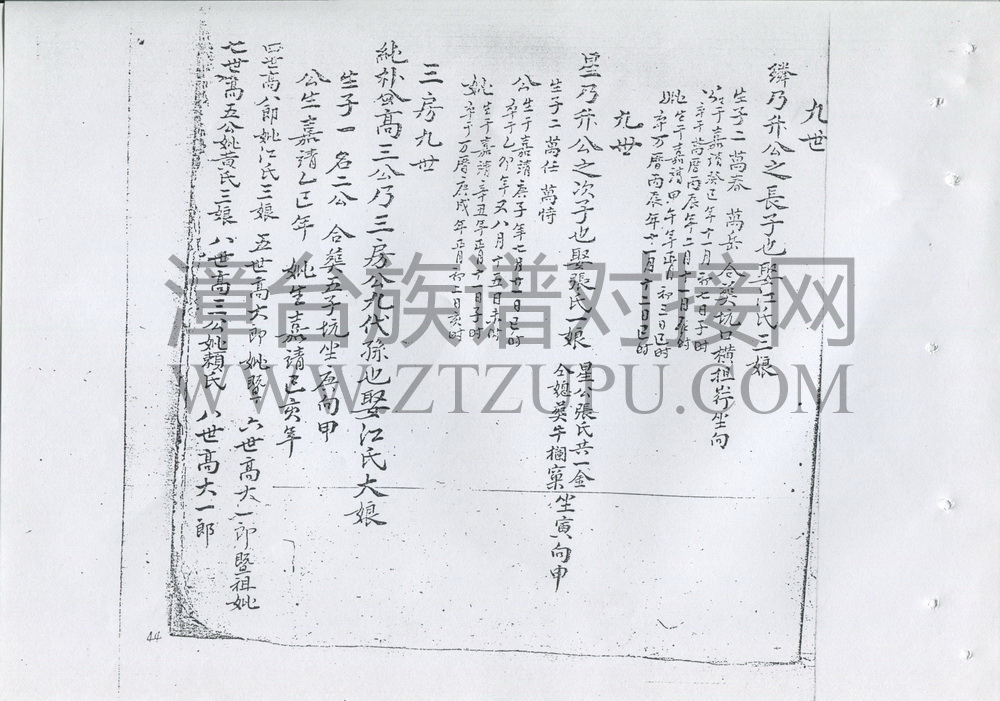 九世
繗乃升公之長子也娶江氏三娘
生子二 萬泰 萬岳 合葬坑口橫担崎坐向
公于嘉靖癸巳年十一月初七日子时
卒于萬曆丙辰年二月十一日
妣生于嘉靖甲午年正月初三日巳时
卒万曆丙辰年十一月十二日巳时
九世
星乃升公之次子也娶張氏一娘
星公張氏共一金
仝媳葬牛欄窠坐寅向申
生子二 萬任 萬恃
公生于嘉靖庚子年七月廿一日巳时
卒于乙卯年又八月十五日未时
妣生于嘉靖辛丑年正月十一日子时
卒于万曆庚戌年正月初二日亥时
三房九世
純朴公高三公乃三房公九代孫也娶江氏大娘
生子一 名二公 合葬五子坑坐庚向甲
公生嘉靖乙巳年 妣生嘉靖己亥年
四世高八郎妣江氏三娘 五世高大郎妣暨 六世高大一郎暨祖妣
七世高五公妣黃氏三娘 八世高三公妣賴氏 八世高大一郎
44
漳台族谱对接网
WWW.ZTZUPU.COM